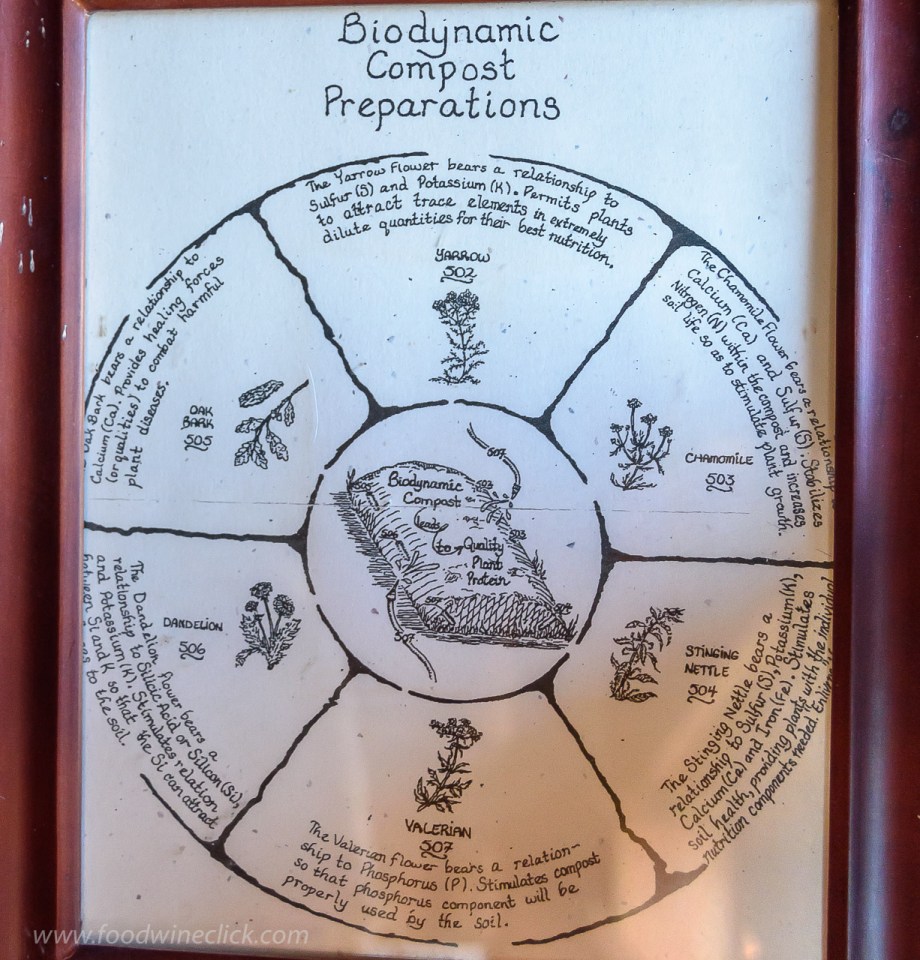 Biodynamic
Compost
Preparations
The Yarrow Flower bears a relationship to
Sulfur (S) and Potassium (K). Permits plants
to attract trace elements in extremely
dilute quantities for their best nutrition.
YARROW
502
The Chamomile Flower bears a relationship to
Calcium (Ca) and Sulfur (S). Stabilizes
Nitrogen (N) within the compost and increases
soil life so as to stimulate plant growth.
CHAMOMILE
503
STINGING
NETTLE
504
The Stinging Nettle bears a
relationship to Sulfur (S), Potassium (K),
Calcium (Ca) and Iron (Fe). Stimulates
soil health, providing plants with the individual
nutrition components needed.
VALERIAN
507
The Valerian flower bears a relation-
ship to Phosphorus (P). Stimulates compost
so that phosphorus component will be
properly used by the soil.
DANDELION
506
The Dandelion flower bears a
relationship to Silicic Acid or Silicon (Si),
and Potassium (K). Stimulates relation
between Si and K so that the Si can attract
to the soil.
Oak Bark bears a relationship to
Calcium (Ca). Provides healing forces
(or qualities) to combat harmful
plant diseases.
OAK
BARK
505
507
505
503
Biodynamic
Compost
leads
to
Quality
Plant
Protein
506
507
www.foodwineclick.com